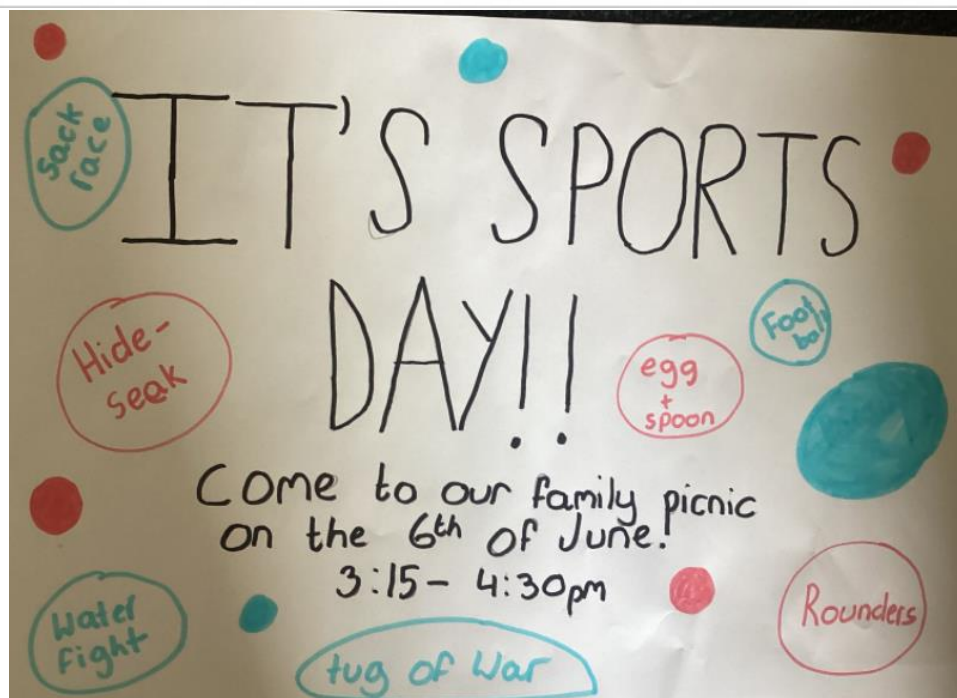 Sack
race
IT'S SPORTS
DAY!!
Hide-
seek
Foot
ball
egg
+
spoon
Come to our family picnic
on the 6th of June!
3:15 - 4:30pm
Water
fight
tug of War
Rounders